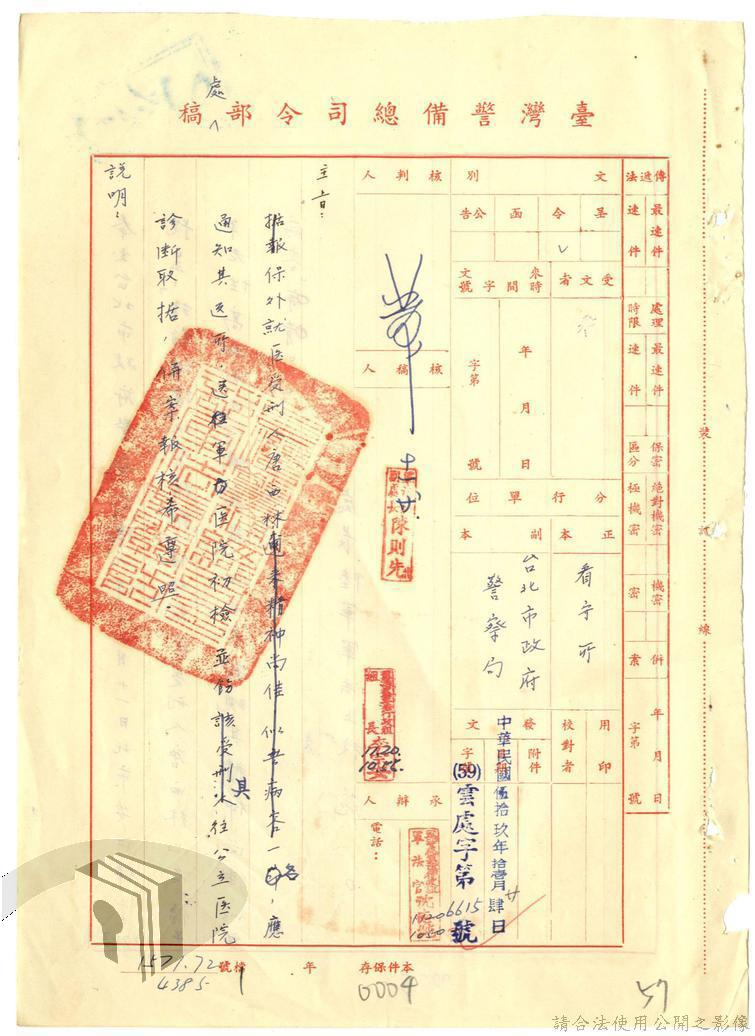 臺灣警備總司令部處稿
傳遞法
最速件
速件
處理時限
最速件
速件
保密區分
絕對機密
極機密
機密
密
附
案
年月日
字第
號
文別
呈
令
函
公告
受文者
來文
時間
字號
年月日
字第
號
分行單位
正本
副本
看守所
台北市政府
警察局
用印
校對者
發文
附件
字號
中華民國伍拾玖年拾壹月廿肆日
(59)雲處字第6615號
核判人
核稿人
十一廿
陳則先
長
1120
1055
承辦人
電話：
軍法官
1120
1050
主旨：
据報保外就医受刑人唐西林邇來精神尚佳似無病容一節，應
通知其返所，送往軍方医院初檢並飭該受刑人其往公立医院
診断取据，併案報核希遵照。
說明：
裝訂線
本件保存
年
檔號
1571.72
4385
1
0004
57
請合法使用公開之影像